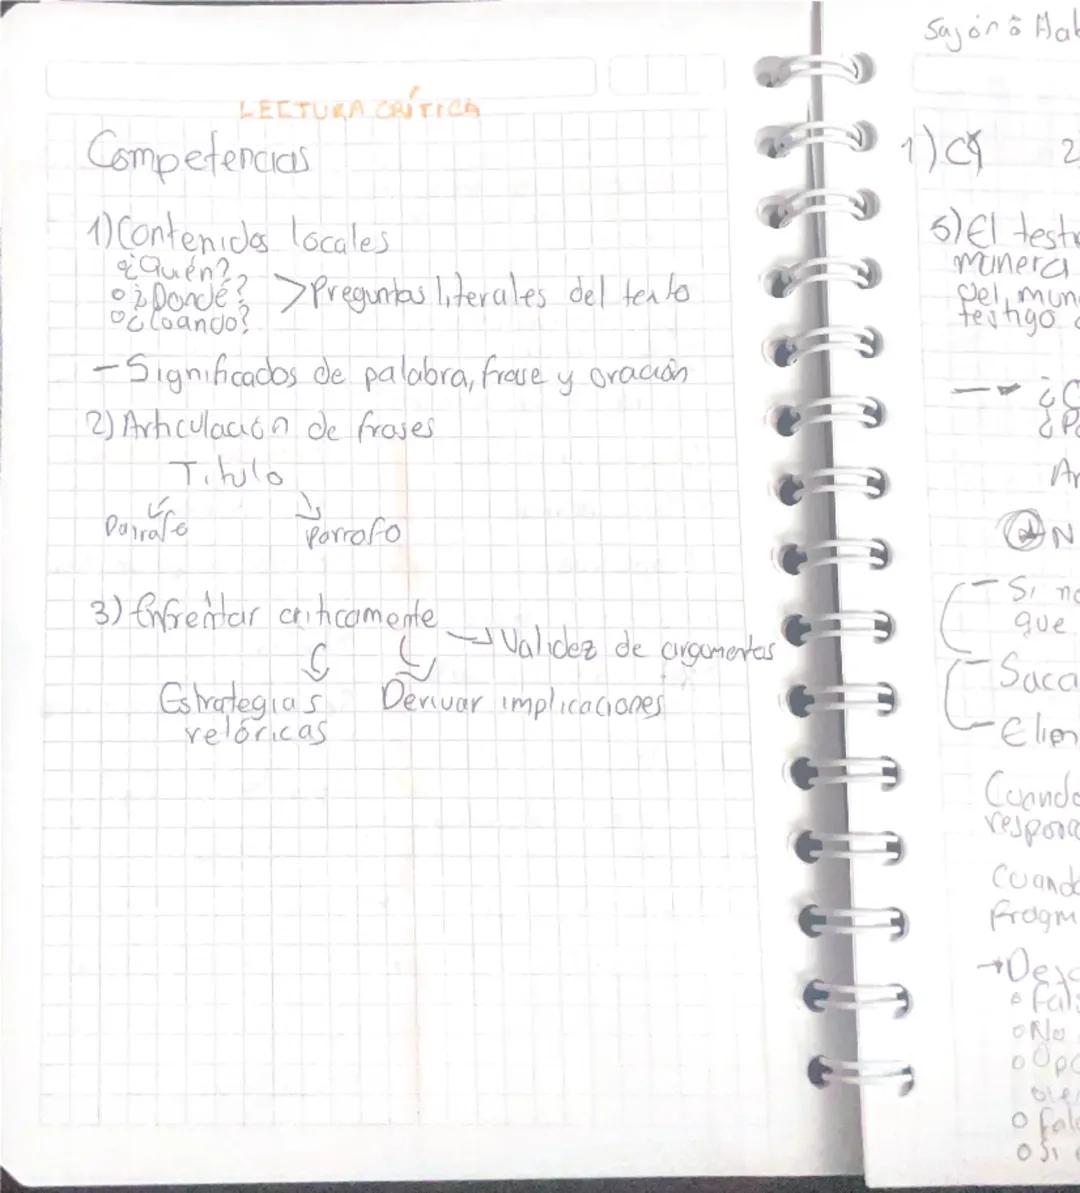 LECTURA CRÍTICA
Competencias
1) Contenidos locales
¿Quién?
¿Donde?
¿Cuando?
> Preguntas literales del texto
- Significados de palabra, frase y oración
2) Articulación de frases
Titulo
Parrafo
Parrafo
3) Enfrentar criticamente
→ Validez de argumentos
Estrategias
retóricas
Derivar implicaciones
1) C
2
5) El
manera
del
testigo
Si no
que
Saca
Cuando
→
No